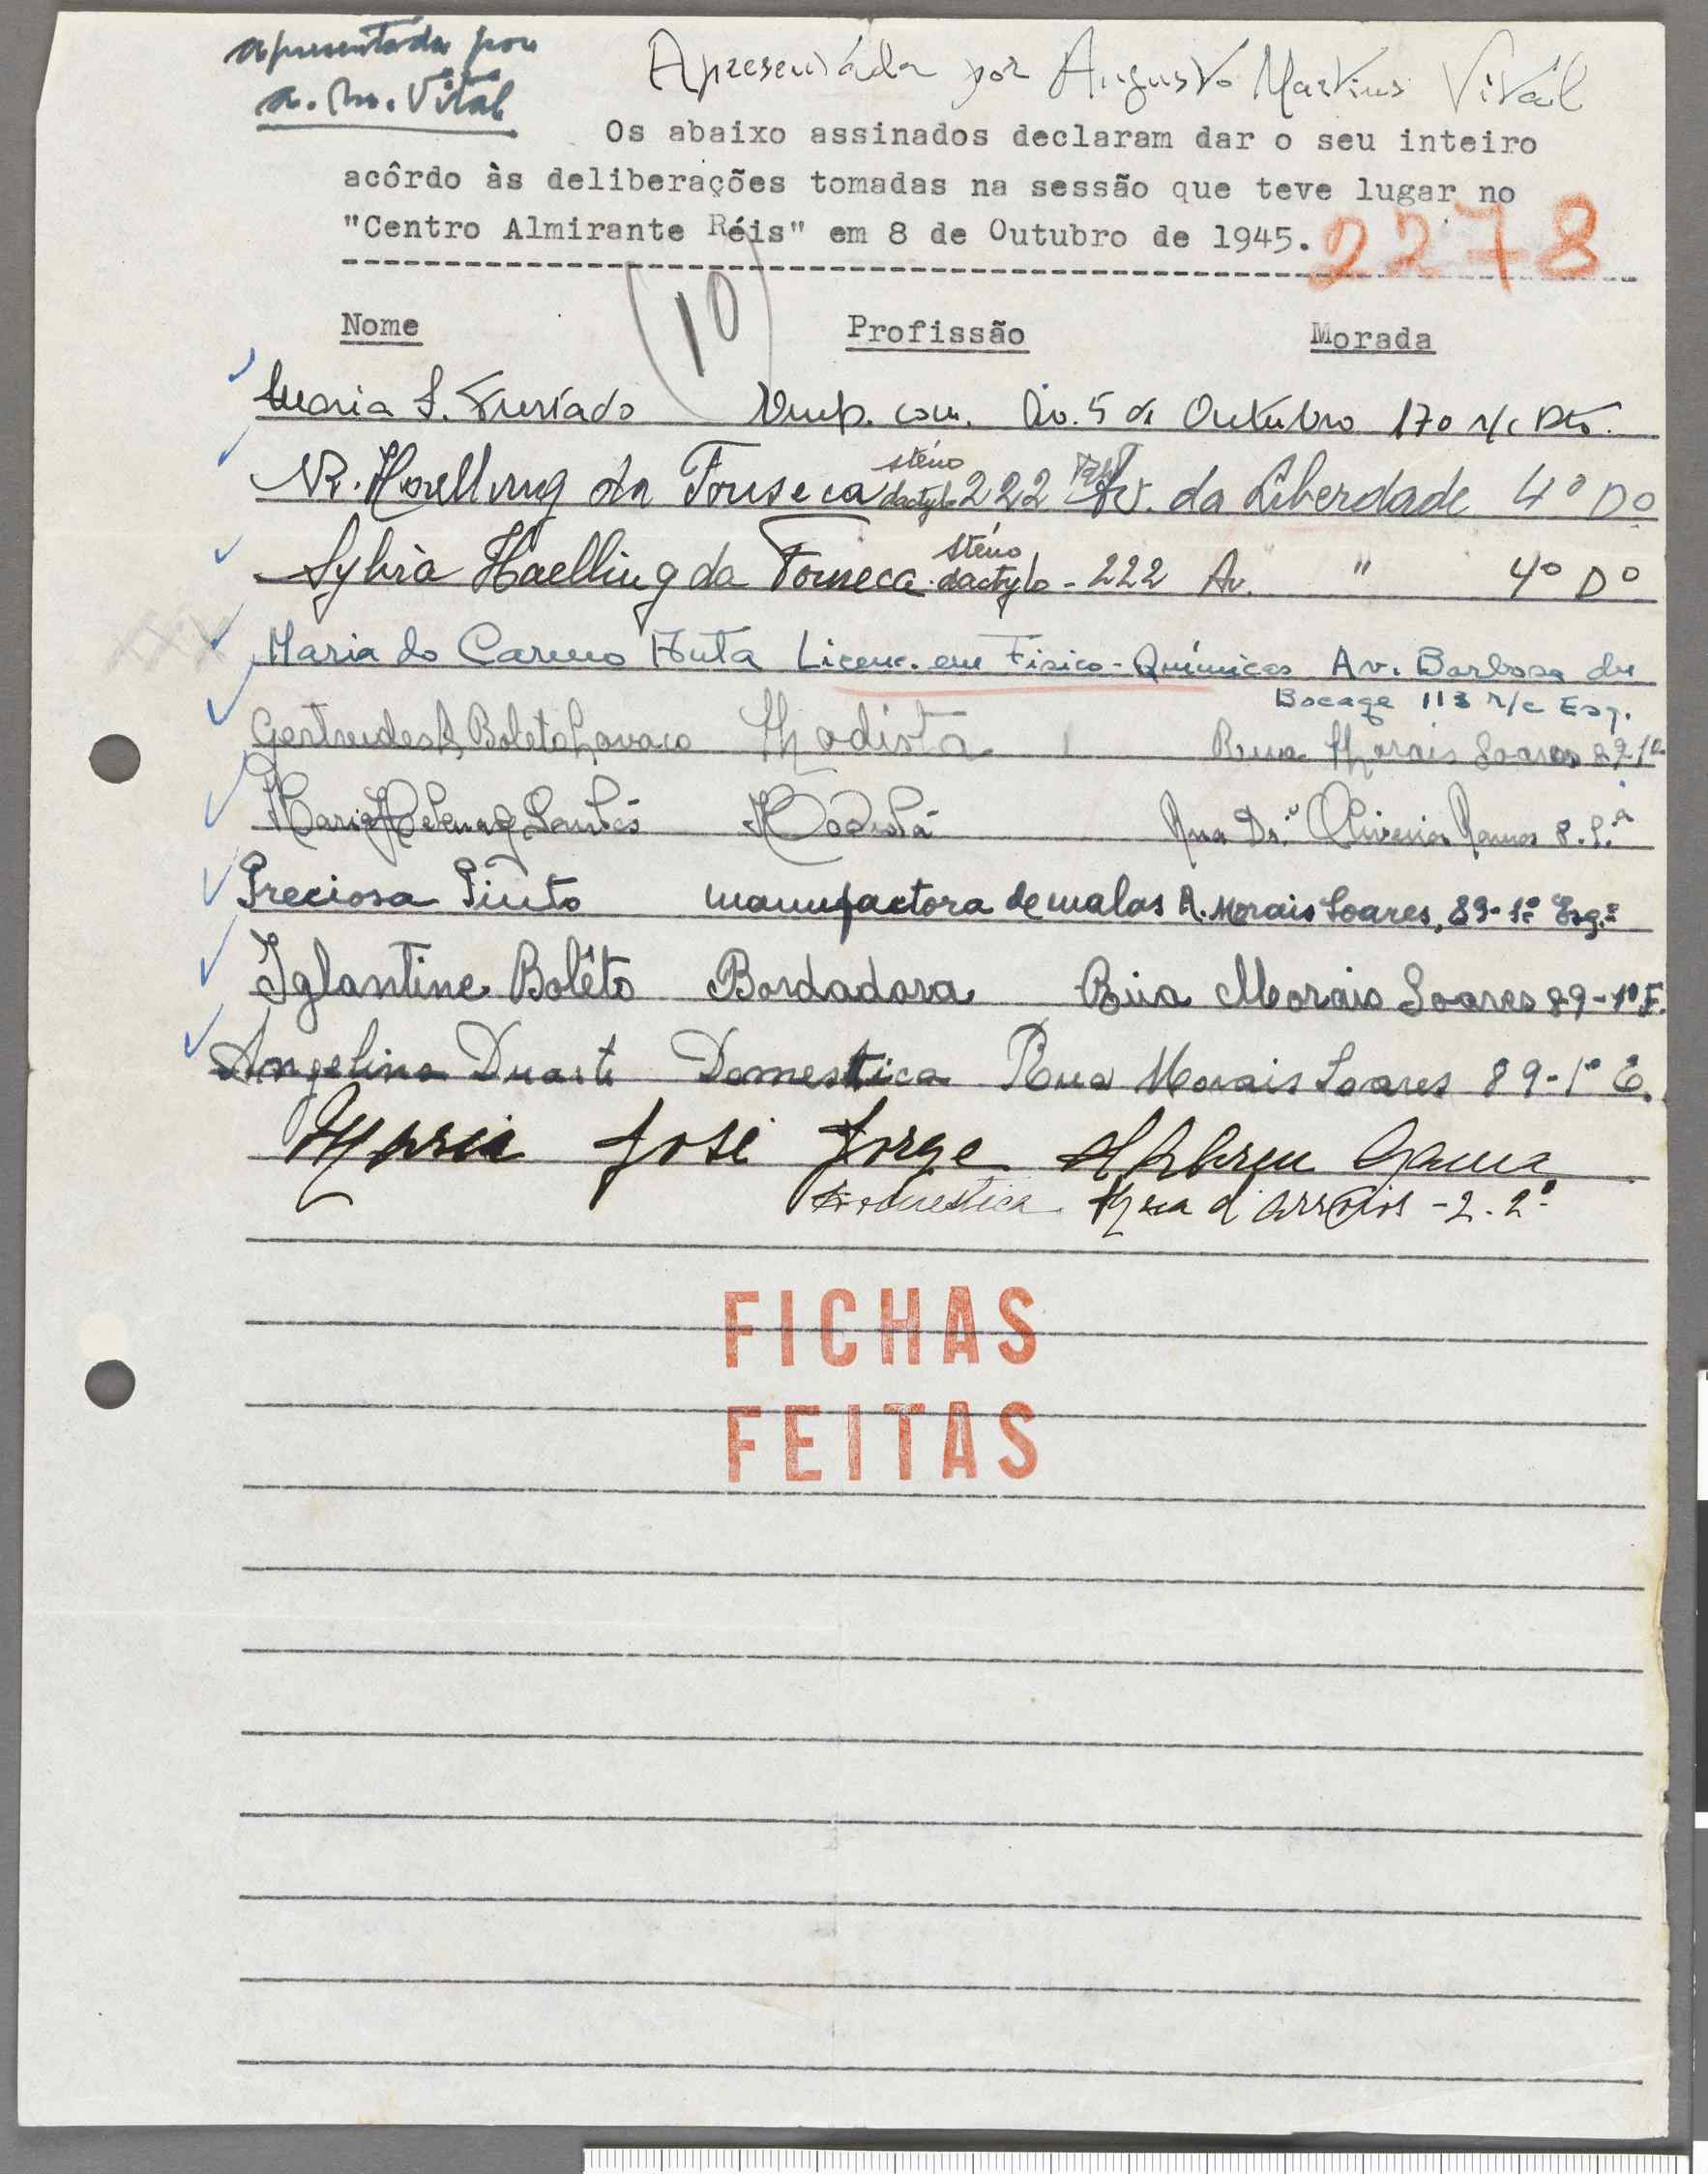 apresentada por
A. M. Vital
Apresentada por Augusto Martins Vital
Os abaixo assinados declaram dar o seu inteiro
acôrdo às deliberações tomadas na sessão que teve lugar no
"Centro Almirante Réis" em 8 de Outubro de 1945.
2278
(10)
Nome Profissão Morada
Maria S. Furtado Emp. com. Av. 5 de Outubro 170 r/c Dto.
Haelling da Fonseca sténo dactylo 222 Av. da Liberdade 4º Dº
Sylvia Haelling da Fonseca sténo dactylo - 222 Av. " 4º Dº
Maria do Carmo Anta Licenc. em Fisico-Químicas Av. Barbosa du
Bocage 113 r/c Esq.
Gertrudes Boleto Lavaco Modista Rua Morais Soares 89-1º
Maria Helena Santos Modista Rua Dr. Oliveira Ramos 8.
Preciosa Pinto manufactora de malas R. Morais Soares, 89-1º Esq.º
Iglantine Bolêto Bordadora Rua Morais Soares 89-1º E.
Angelina Duarte Domestica Rua Morais Soares 89-1º E.
Maria José Jorge d'Abreu Gama
Domestica Rua d'Arroios - 2. 2º
FICHAS
FEITAS